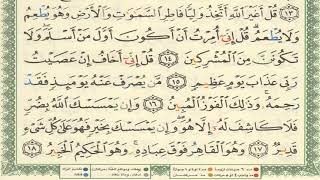 ١٣ قُلْ أَغَيْرَ ٱللَّهِ أَتَّخِذُ وَلِيًّا فَاطِرِ ٱلسَّمَٰوَٰتِ وَٱلْأَرْضِ وَهُوَ يُطْعِمُ
وَلَا يُطْعَمُ قُلْ إِنِّىٓ أُمِرْتُ أَنْ أَكُونَ أَوَّلَ مَنْ أَسْلَمَ وَلَا
تَكُونَنَّ مِنَ ٱلْمُشْرِكِينَ ١٤ قُلْ إِنِّىٓ أَخَافُ إِنْ عَصَيْتُ
رَبِّى عَذَابَ يَوْمٍ عَظِيمٍ ١٥ مَّن يُصْرَفْ عَنْهُ يَوْمَئِذٍ فَقَدْ
رَحِمَهُۥ وَذَٰلِكَ ٱلْفَوْزُ ٱلْمُبِينُ ١٦ وَإِن يَمْسَسْكَ ٱللَّهُ بِضُرٍّ
فَلَا كَاشِفَ لَهُۥٓ إِلَّا هُوَ وَإِن يَمْسَسْكَ بِخَيْرٍ فَهُوَ عَلَىٰ كُلِّ شَىْءٍ
قَدِيرٌ ١٧ وَهُوَ ٱلْقَاهِرُ فَوْقَ عِبَادِهِۦ وَهُوَ ٱلْحَكِيمُ ٱلْخَبِيرُ ١٨